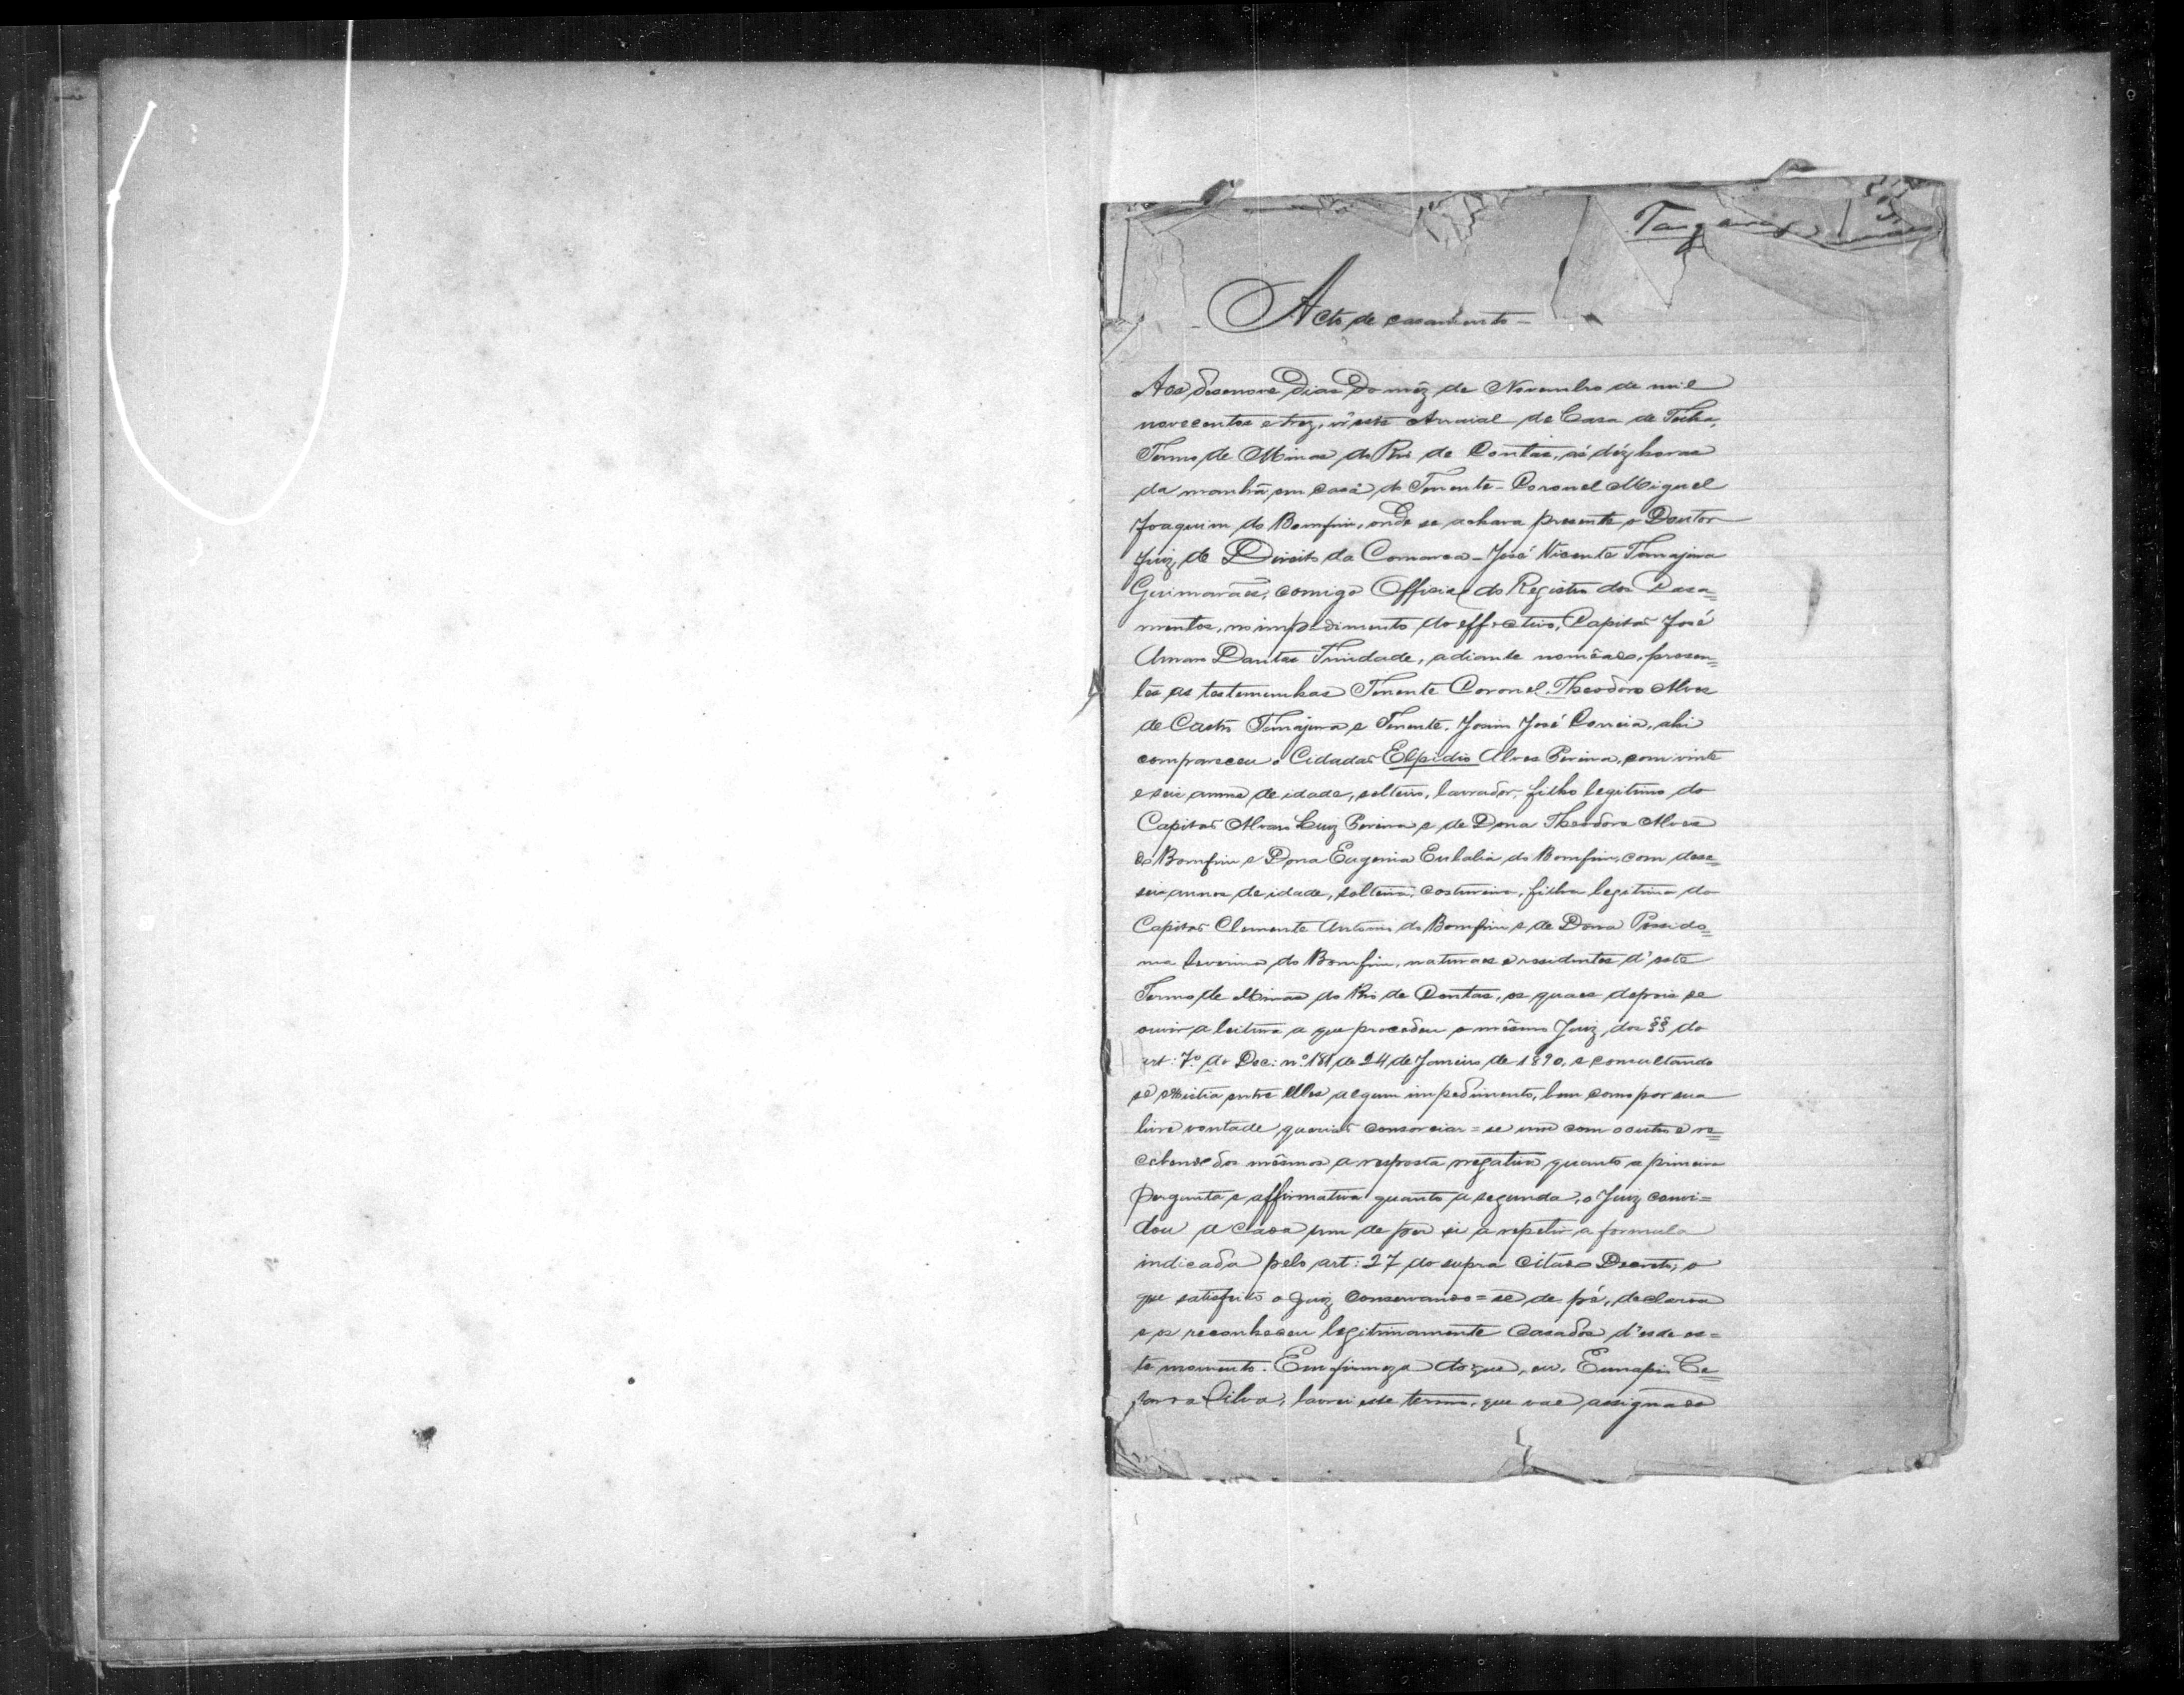 Acto de casamento
Aos desenove dias do mêz de Novembro de mil
novecentos e trez, n'este Arraial de Casa de Telha,
Termo de Minas do Rio de Contas, ás déz horas
da manhã em casa do Tenente-Coronel Miguel
Joaquim do Bomfim, onde se achava presente o Doutor
Juiz de Direito da Comarca - José Vicente Tanajura
Guimarães, comigo Official do Registro dos Casa=
mentos, no impedimento do effectivo, Capitão José
Amaro Dantas Trindade, adiante nomêado, presen=
tes as testemunhas Tenente Coronel Theodoro Alves
de Castro Tanajura e Tenente José Correia, ahi
compareceu o Cidadão Elpidio Alves Pereira, com vinte
e seis annos de idade, solteiro, lavrador, filho legitimo do
Capitão Alvaro Luiz Pereira e de Dona Theodora Alves
do Bomfim e Dona Eugenia Eulalia do Bomfim, com dese=
seis annos de idade, solteira, costureira, filha legitima do
Capitão Clemente Antonio do Bomfim e de Dona Possido=
nia Severina do Bomfim, naturaes e residentes d'este
Termo de Minas do Rio de Contas, os quaes depois de
ouvir a leitura a que procedeu o mêsmo Juiz dos §§ do
art: 7º do Dec: nº 181 de 24 de Janeiro de 1890, e consultando
se existia entre elles algum impedimento, bem como por sua
livre vontade, querião consorciar=se um com o outro e re=
cebendo dos mêsmos a resposta negativa quanto a primeira
pergunta e affirmativa quanto a segunda, o Juiz convi=
dou a cada um de per si a repetir a formula
indicada pelo art: 27 do supra citado Decreto, o
que satisfeito o Juiz conservando=se de pé, declarou
e os reconheceu legitimamente casados d'esde es=
te momento. Em firmeza do que, eu, Eunapio
Silva, lavrei este termo, que vae assignado